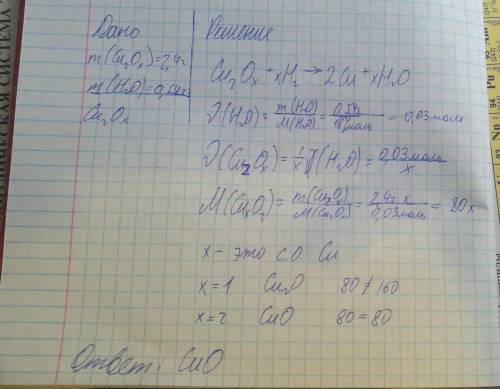 Дано
m(Cu₂Oₓ)=2,4г
m(H₂O)=0,54г
Cu₂Oₓ
Решение
Cu₂Oₓ + xH₂ → 2Cu + xH₂O
ν(H₂O) = m(H₂O)/M(H₂O) = 0,54г/18г/моль = 0,03моль
ν(Cu₂Oₓ) = 1/x ν(H₂O) = 0,03моль/x
M(Cu₂Oₓ) = m(Cu₂Oₓ)/M(Cu₂Oₓ) = 2,4г x/0,03моль = 80x
x - это с.о Cu
x=1 Cu₂O 80≠160
x=2 CuO 80=80
Ответ: CuO